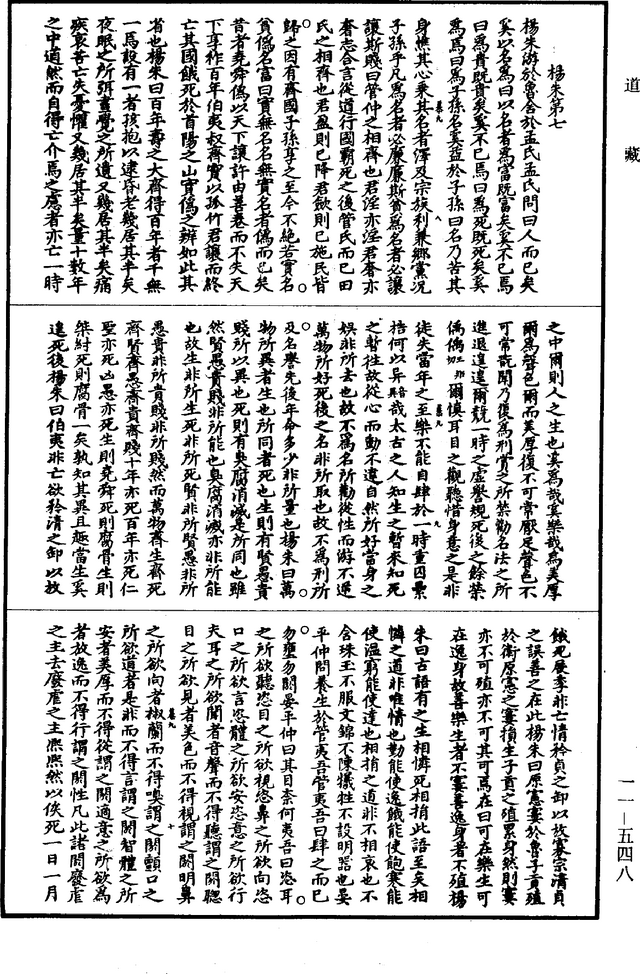 道藏
楊朱第七
楊朱游於魯舍於孟氏孟氏問曰人而已矣
奚以名爲曰以名者爲富既富矣奚不已焉
曰爲貴既貴矣奚不已焉曰爲死既死矣奚
爲焉曰爲子孫名奚益於子孫曰名乃苦其
身燋其心乘其名者澤及宗族利兼鄉黨況
子孫乎凡爲名者必廉廉斯貧爲名者必讓
讓斯賤曰管仲之相齊也君淫亦淫君奢亦
奢志合言從道行國霸死之後管氏而已田
氏之相齊也君盈則已降君歛則已施民皆
歸之因有齊國子孫享之至今不絕若實名
貧僞名富曰實無名名無實名者僞而已矣
昔者堯舜僞以天下讓許由善卷而不失天
下享祚百年伯夷叔齊實以孤竹君讓而終
亡其國餓死於首陽之山實僞之辨如此其
省也楊朱曰百年壽之大齊得百年者千無
一焉設有一者孩抱以逮昏老幾居其半矣
夜眠之所弭晝覺之所遺又幾居其半矣痛
疾哀苦亡失憂懼又幾居其半矣量十數年
之中逌然而自得亡介焉之慮者亦亡一時
之中爾則人之生也奚爲哉奚樂哉爲美厚
爾爲聲色爾而美厚復不可常厭足聲色不
可常翫聞乃復爲刑賞之所禁勸名法之所
進退遑遑爾競一時之虛譽規死後之餘榮
偊偊爾慎耳目之觀聽惜身意之是非
徒失當年之至樂不能自肆於一時重囚累
梏何以異哉太古之人知生之暫來知死
之暫往故從心而動不違自然所好當身之
娛非所去也故不爲名所勸從性而游不逆
萬物所好死後之名非所取也故不爲刑所
及名譽先後年命多少非所量也楊朱曰萬
物所異者生也所同者死也生則有賢愚貴
賤所以異也死則有臭腐消滅是所同也雖
然賢愚貴賤非所能也臭腐消滅亦非所能
也故生非所生死非所死賢非所賢愚非所
愚貴非所貴賤非所賤然而萬物齊生齊死
齊賢齊愚齊貴齊賤十年亦死百年亦死仁
聖亦死凶愚亦死生則堯舜死則腐骨生則
桀紂死則腐骨一矣孰知其異且趣當生奚
遑死後楊朱曰伯夷非亡欲矜清之卸以放
餓死展季非亡情矜貞之卸以放寡宗清貞
之誤善之在此楊朱曰原憲窶於魯子貢殖
於衛原憲之窶損生子貢之殖累身然則窶
亦不可殖亦不可其可焉在曰可在樂生可
在逸身故善樂生者不窶善逸身者不殖楊
朱曰古語有之生相憐死相捐此語至矣相
憐之道非唯情也勤能使逸餓能使飽寒能
使溫窮能使達也相捐之道非不相哀也不
含珠玉不服文錦不陳犧牲不設明器也晏
平仲問養生於管夷吾管夷吾曰肆之而已
勿壅勿閼晏平仲曰其目奈何夷吾曰恣耳
之所欲聽恣目之所欲視恣鼻之所欲向恣
口之所欲言恣體之所欲安恣意之所欲行
夫耳之所欲聞者音聲而不得聽謂之閼聰
目之所欲見者美色而不得視謂之閼明鼻
之所欲向者椒蘭而不得嗅謂之閼顫口之
所欲道者是非而不得言謂之閼智體之所
欲安者美厚而不得從謂之閼適意之所欲爲
者放逸而不得行謂之閼性凡此諸閼廢虐
之主去廢虐之主熙熙然以俟死一日一月
一一—五四八